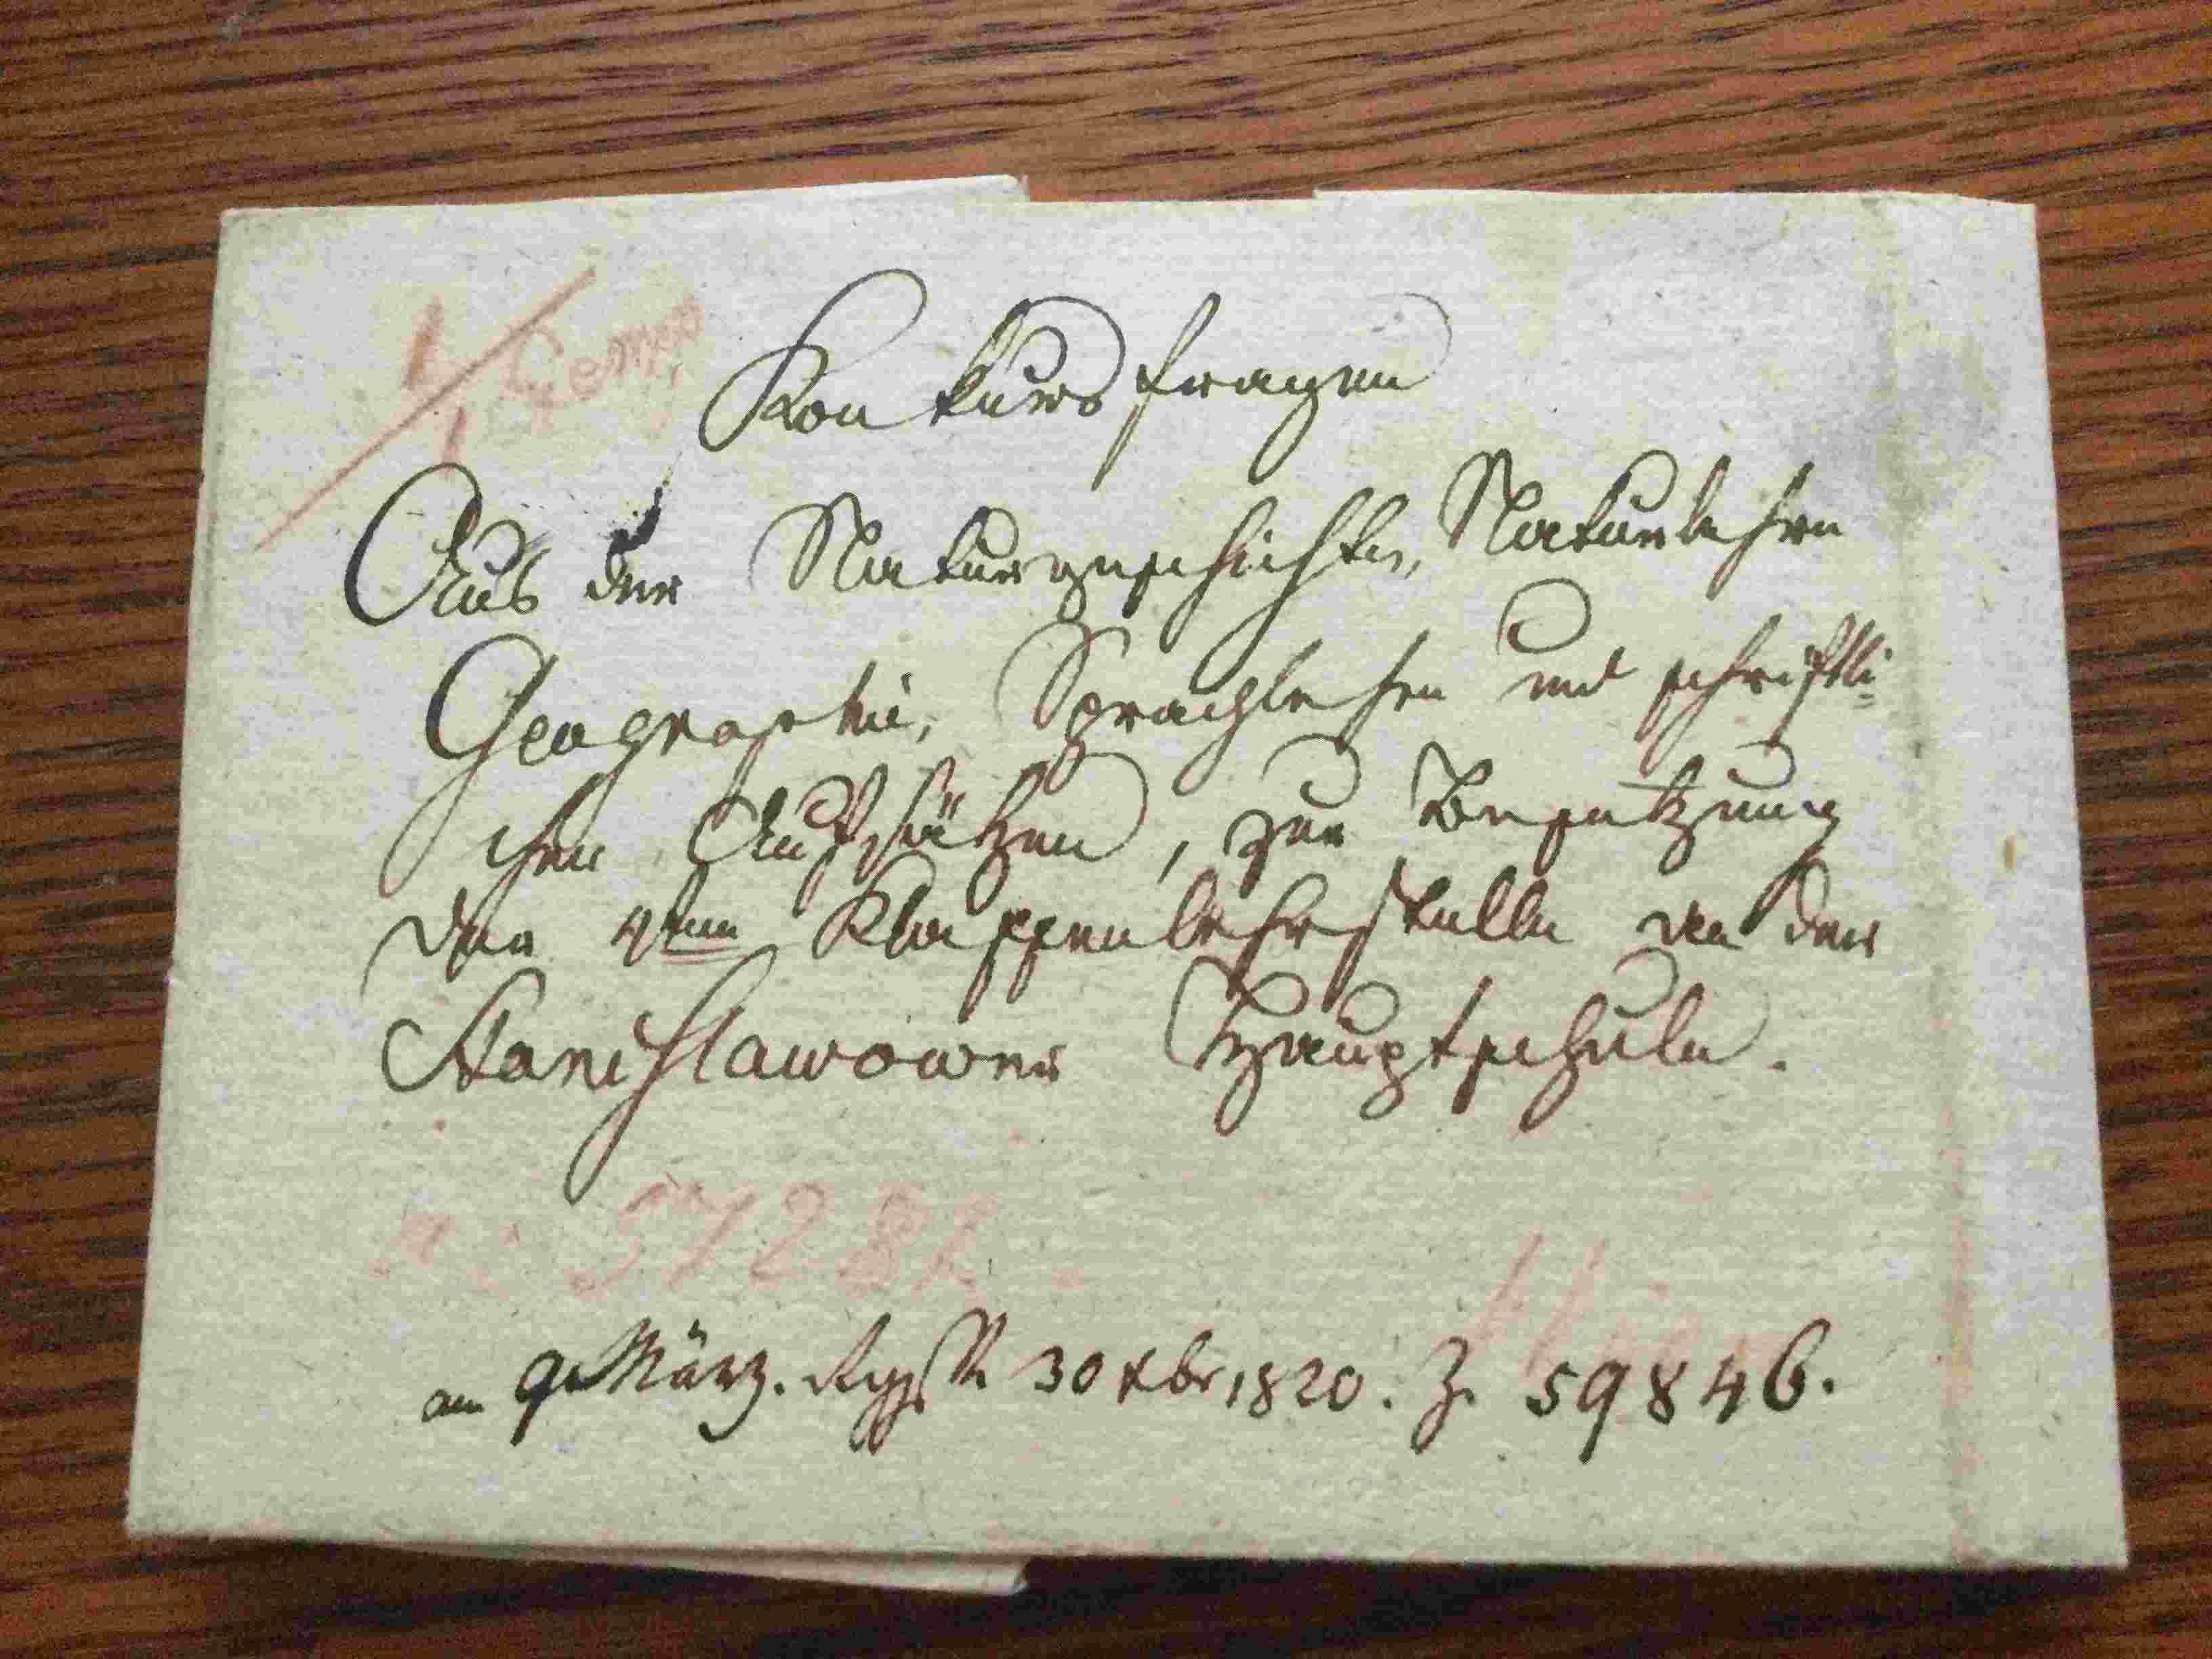 Konkursfragen
Aus der Naturgeschichte, Naturlehre
Geographie, Sprachlehre und schriftli=
chen Aufsätzen, zur Besetzung
der 4ten Klassenlehrstelle an der
Stanislawower Hauptschule.
57281
am 9 März. 30 xbr 1820. Z. 59846.